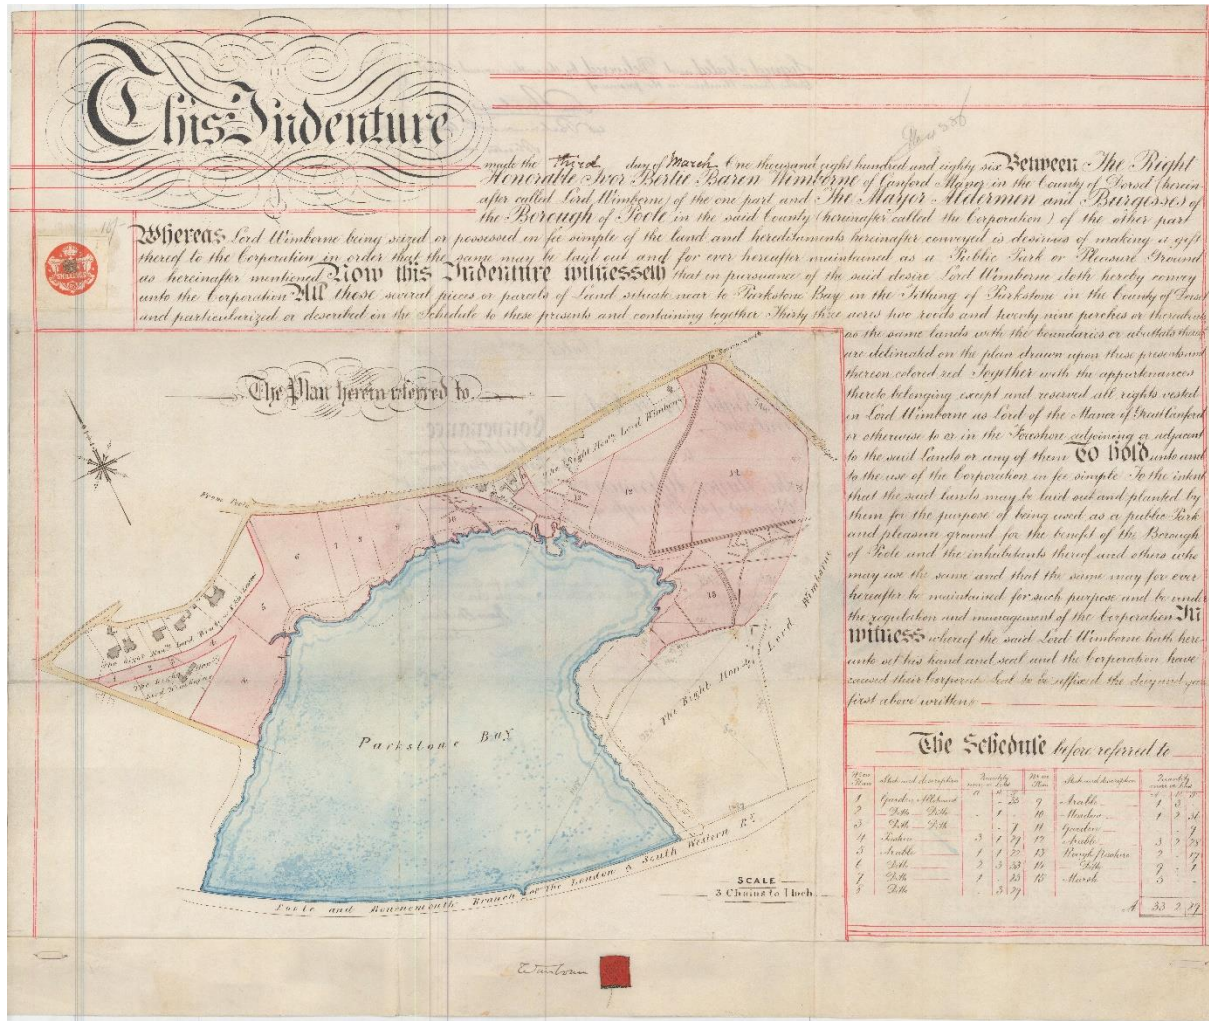 This Indenture
made the third day of March One thousand eight hundred and eighty six Between The Right
Honorable Ivor Bertie Baron Wimborne of Canford Manor in the County of Dorset (herein-
after called Lord Wimborne) of the one part and The Mayor Aldermen and Burgesses of
the Borough of Poole in the said County (hereinafter called the Corporation) of the other part
Whereas Lord Wimborne being seized or possessed in fee simple of the land and hereditaments hereinafter conveyed is desirous of making a gift
thereof to the Corporation in order that the same may be laid out and for ever hereafter maintained as a Public Park or Pleasure Ground
as hereinafter mentioned Now this Indenture witnesseth that in pursuance of the said desire Lord Wimborne doth hereby convey
unto the Corporation All those several pieces or parcels of Land situate near to Parkstone Bay in the Tithing of Parkstone in the County of Dorset
and particularized or described on the Schedule to these presents and containing together Thirty three acres two roods and twenty nine perches or thereabouts
as the same lands with the boundaries or abuttals thereof
are deliniated on the plan drawn upon these presents and
thereon colored red Together with the appurtenances
thereto belonging except and reserved all rights vested
in Lord Wimborne as Lord of the Manor of Great Canford
or otherwise to or in the Foreshore adjoining or adjacent
to the said Lands or any of them To hold unto and
to the use of the Corporation in fee simple To the intent
that the said Lands may be laid out and planted by
them for the purpose of being used as a public Park
and pleasure ground for the benefit of the Borough
of Poole and the inhabitants thereof and others who
may use the same and that the same may for ever
hereafter be maintained for such purpose and be under
the regulation and management of the Corporation In
witness whereof the said Lord Wimborne hath here-
unto set his hand and seal and the Corporation have
caused their Corporate Seal to be affixed the day and year
first above written
The Plan herein referred to.
The Right Honble Lord Wimborne
From Poole
The Right Honble Lord Wimborne
The Right Honble
Lord Wimborne
The Right Honble Lord
Wimborne
Parkstone Bay
Poole and Bournemouth Branch of The London & South Western Ry.
SCALE
3 Chains to 1 Inch
The Schedule before referred to
No on Plan State and description Quantity No on Plan State and description Quantity
1 Garden Allotment - 35 9 Arable 1 3 -
2 Ditto Ditto - 1 - 10 Meadow 1 2 36
3 Ditto Ditto - - 7 11 Garden - - 9
4 3 1 29 12 Arable 3 2 28
5 Arable 1 1 22 13 Rough Pasture 2 - 17
6 Ditto 2 3 33 14 Ditto 9 - 1
7 Ditto 1 - 23 15 Marsh 3 -
8 Ditto 3 29
A 33 2 29
Wimborne